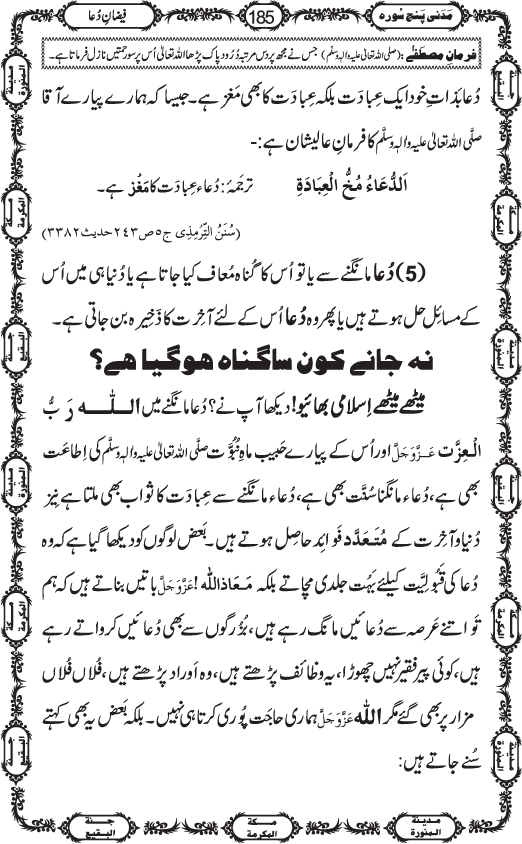 مَدَنی پنج سورہ
185
فیضانِ دُعا
فرمانِ مصطفٰے: (صلی اللہ تعالیٰ علیہ والہٖ وسلم) جس نے مجھ پر دس مرتبہ دُرُود پاک پڑھا اللہ تعالیٰ اُس پر سو رحمتیں نازل فرماتا ہے۔
دُعا بذاتِ خود ایک عِبادَت بلکہ عِبادَت کا بھی مَغز ہے۔ جیسا کہ ہمارے پیارے آقا
صلَّی اللہ تعالیٰ علیہ والہٖ وسلَّم کا فرمانِ عالیشان ہے:-
اَلدُّعَاءُ مُخُّ الْعِبَادَةِ ترجَمَہ: دُعاء عِبادَت کا مَغْز ہے۔
(سُنَنُ التِّرْمِذِی ج۵ ص۲۴۳ حدیث ۳۳۸۲)
(5) دُعا مانگنے سے یا تو اُس کا گُناہ مُعاف کیا جاتا ہے یا دُنیا ہی میں اُس
کے مسائل حل ہوتے ہیں یا پھر وہ دُعا اُس کے لئے آخِرت کا ذَخِیرہ بن جاتی ہے۔
نہ جانے کون سا گناہ ہو گیا ہے؟
میٹھے میٹھے اِسلامی بھائیو! دیکھا آپ نے؟ دُعا مانگنے میں اللہ رَبُّ
الْعِزَّت عَزَّوَجَلَّ اور اُس کے پیارے حَبیب ماہِ نُبُوَّت صلَّی اللہ تعالیٰ علیہ والہٖ وسلَّم کی اِطاعَت
بھی ہے، دُعاء مانگنا سُنَّت بھی ہے، دُعاء مانگنے سے عِبادَت کا ثواب بھی ملتا ہے نِیز
دُنیا و آخِرت کے مُتَعَدَّد فَوائد حاصِل ہوتے ہیں۔ بَعْض لوگوں کو دیکھا گیا ہے کہ وہ
دُعا کی قَبُولِیَّت کیلئے بہُت جلدی مچاتے بلکہ مَعَاذَ اللہ! عَزَّوَجَلَّ باتیں بناتے ہیں کہ ہم
تَو اتنے عَرصہ سے دُعائیں مانگ رہے ہیں، بُزُرگوں سے بھی دُعائیں کرواتے رہے
ہیں، کوئی پیر فقیر نہیں چھوڑا، یہ وظائف پڑھتے ہیں، وہ اَوراد پڑھتے ہیں، فُلاں فُلاں
مزار پر بھی گئے مگر اللہ عَزَّوَجَلَّ ہماری حاجَت پُوری کرتا ہی نہیں۔ بلکہ بَعْض یہ بھی کہتے
سُنے جاتے ہیں:
مدینۃ المنورۃ
مکۃ المکرمۃ
جنۃ البقیع